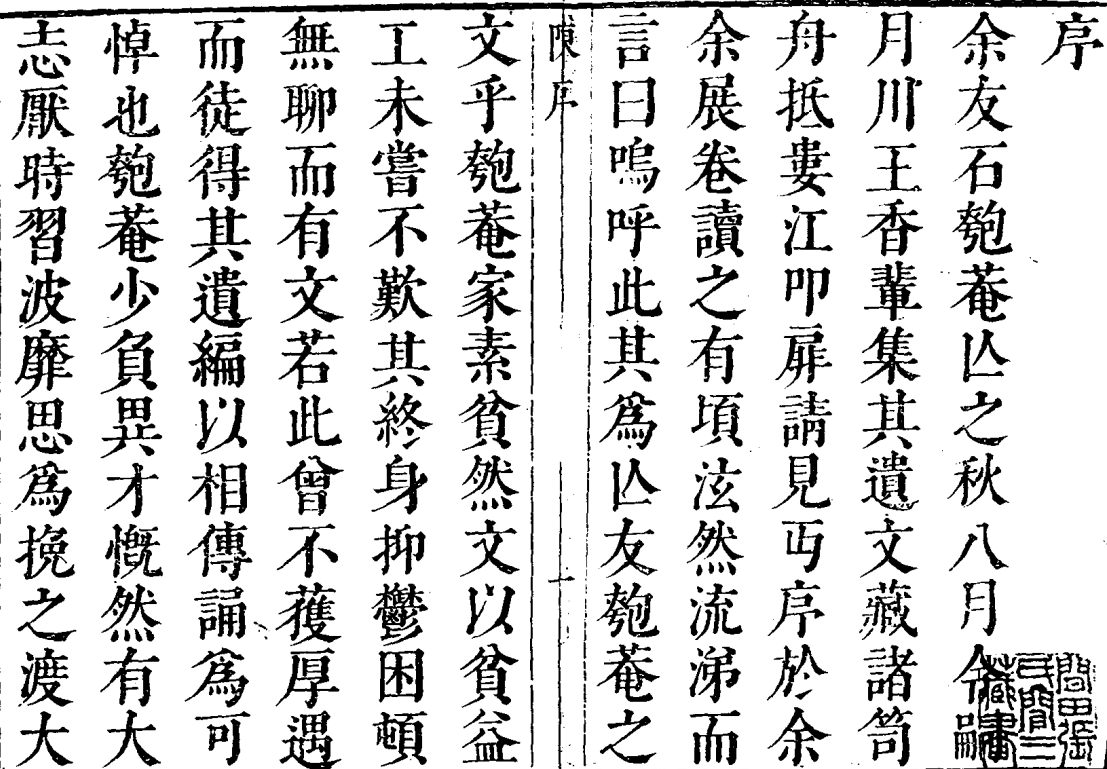 序
余友石匏菴亾之秋八月令嗣
月川王香輩集其遺文藏諸笥
舟抵婁江叩扉請見丏序於余
余展卷讀之有頃泫然流涕而
言曰嗚呼此其爲亾友匏菴之
陳序
一
文乎匏菴家素貧然文以貧益
工未嘗不歎其終身抑鬱困頓
無聊而有文若此曾不獲厚遇
而徒得其遺編以相傳誦爲可
悼也匏菴少負異才慨然有大
志厭時習波靡思爲挽之渡大